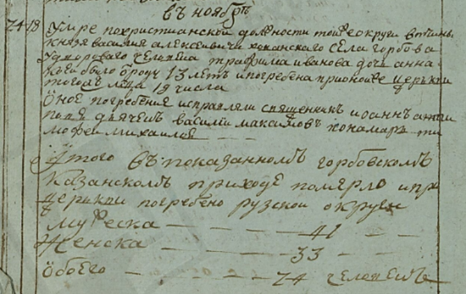 въ ноябрѣ
24 18 Умре похристианской должности тойже округи вотчины
князя василия алексѣевича хованскаго села горбова
умершаго человека трифила иванова дочь анна
коей было отроду 13 летъ и погребена при оной же церькви
тогожъ месяца 19 числа
Оное погребение исправляли священникъ иоаннъ
дьячекъ василий максимовъ пономарь ти
мофей михаиловъ
Итого въ показанномъ горбовскомъ
Казанскомъ приходе померло и при
церикви погребено рузской округи
Мужеска — 41
Женска — 33
Обоего — 74 человекъ